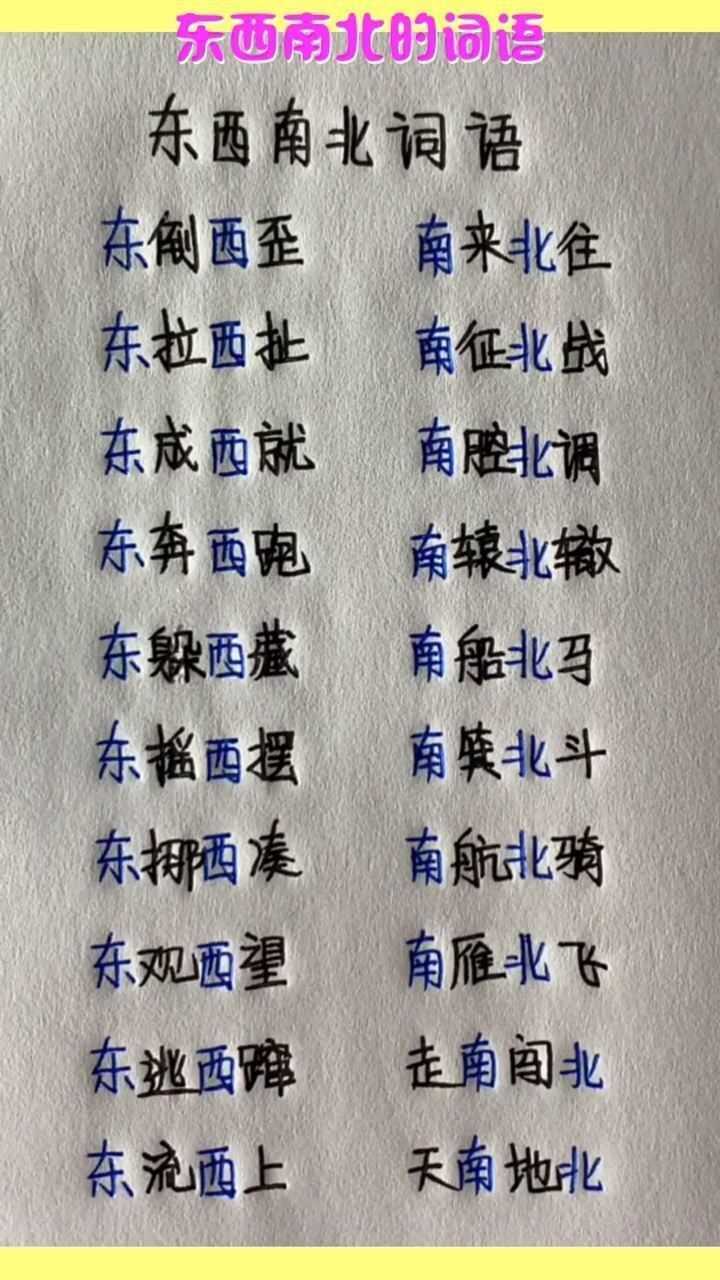 东西南北的词语
东西南北词语
东倒西歪 南来北往
东拉西扯 南征北战
东成西就 南腔北调
东奔西跑 南辕北辙
东躲西藏 南船北马
东摇西摆 南箕北斗
东挪西凑 南航北骑
东观西望 南雁北飞
东逃西蹿 走南闯北
东流西上 天南地北